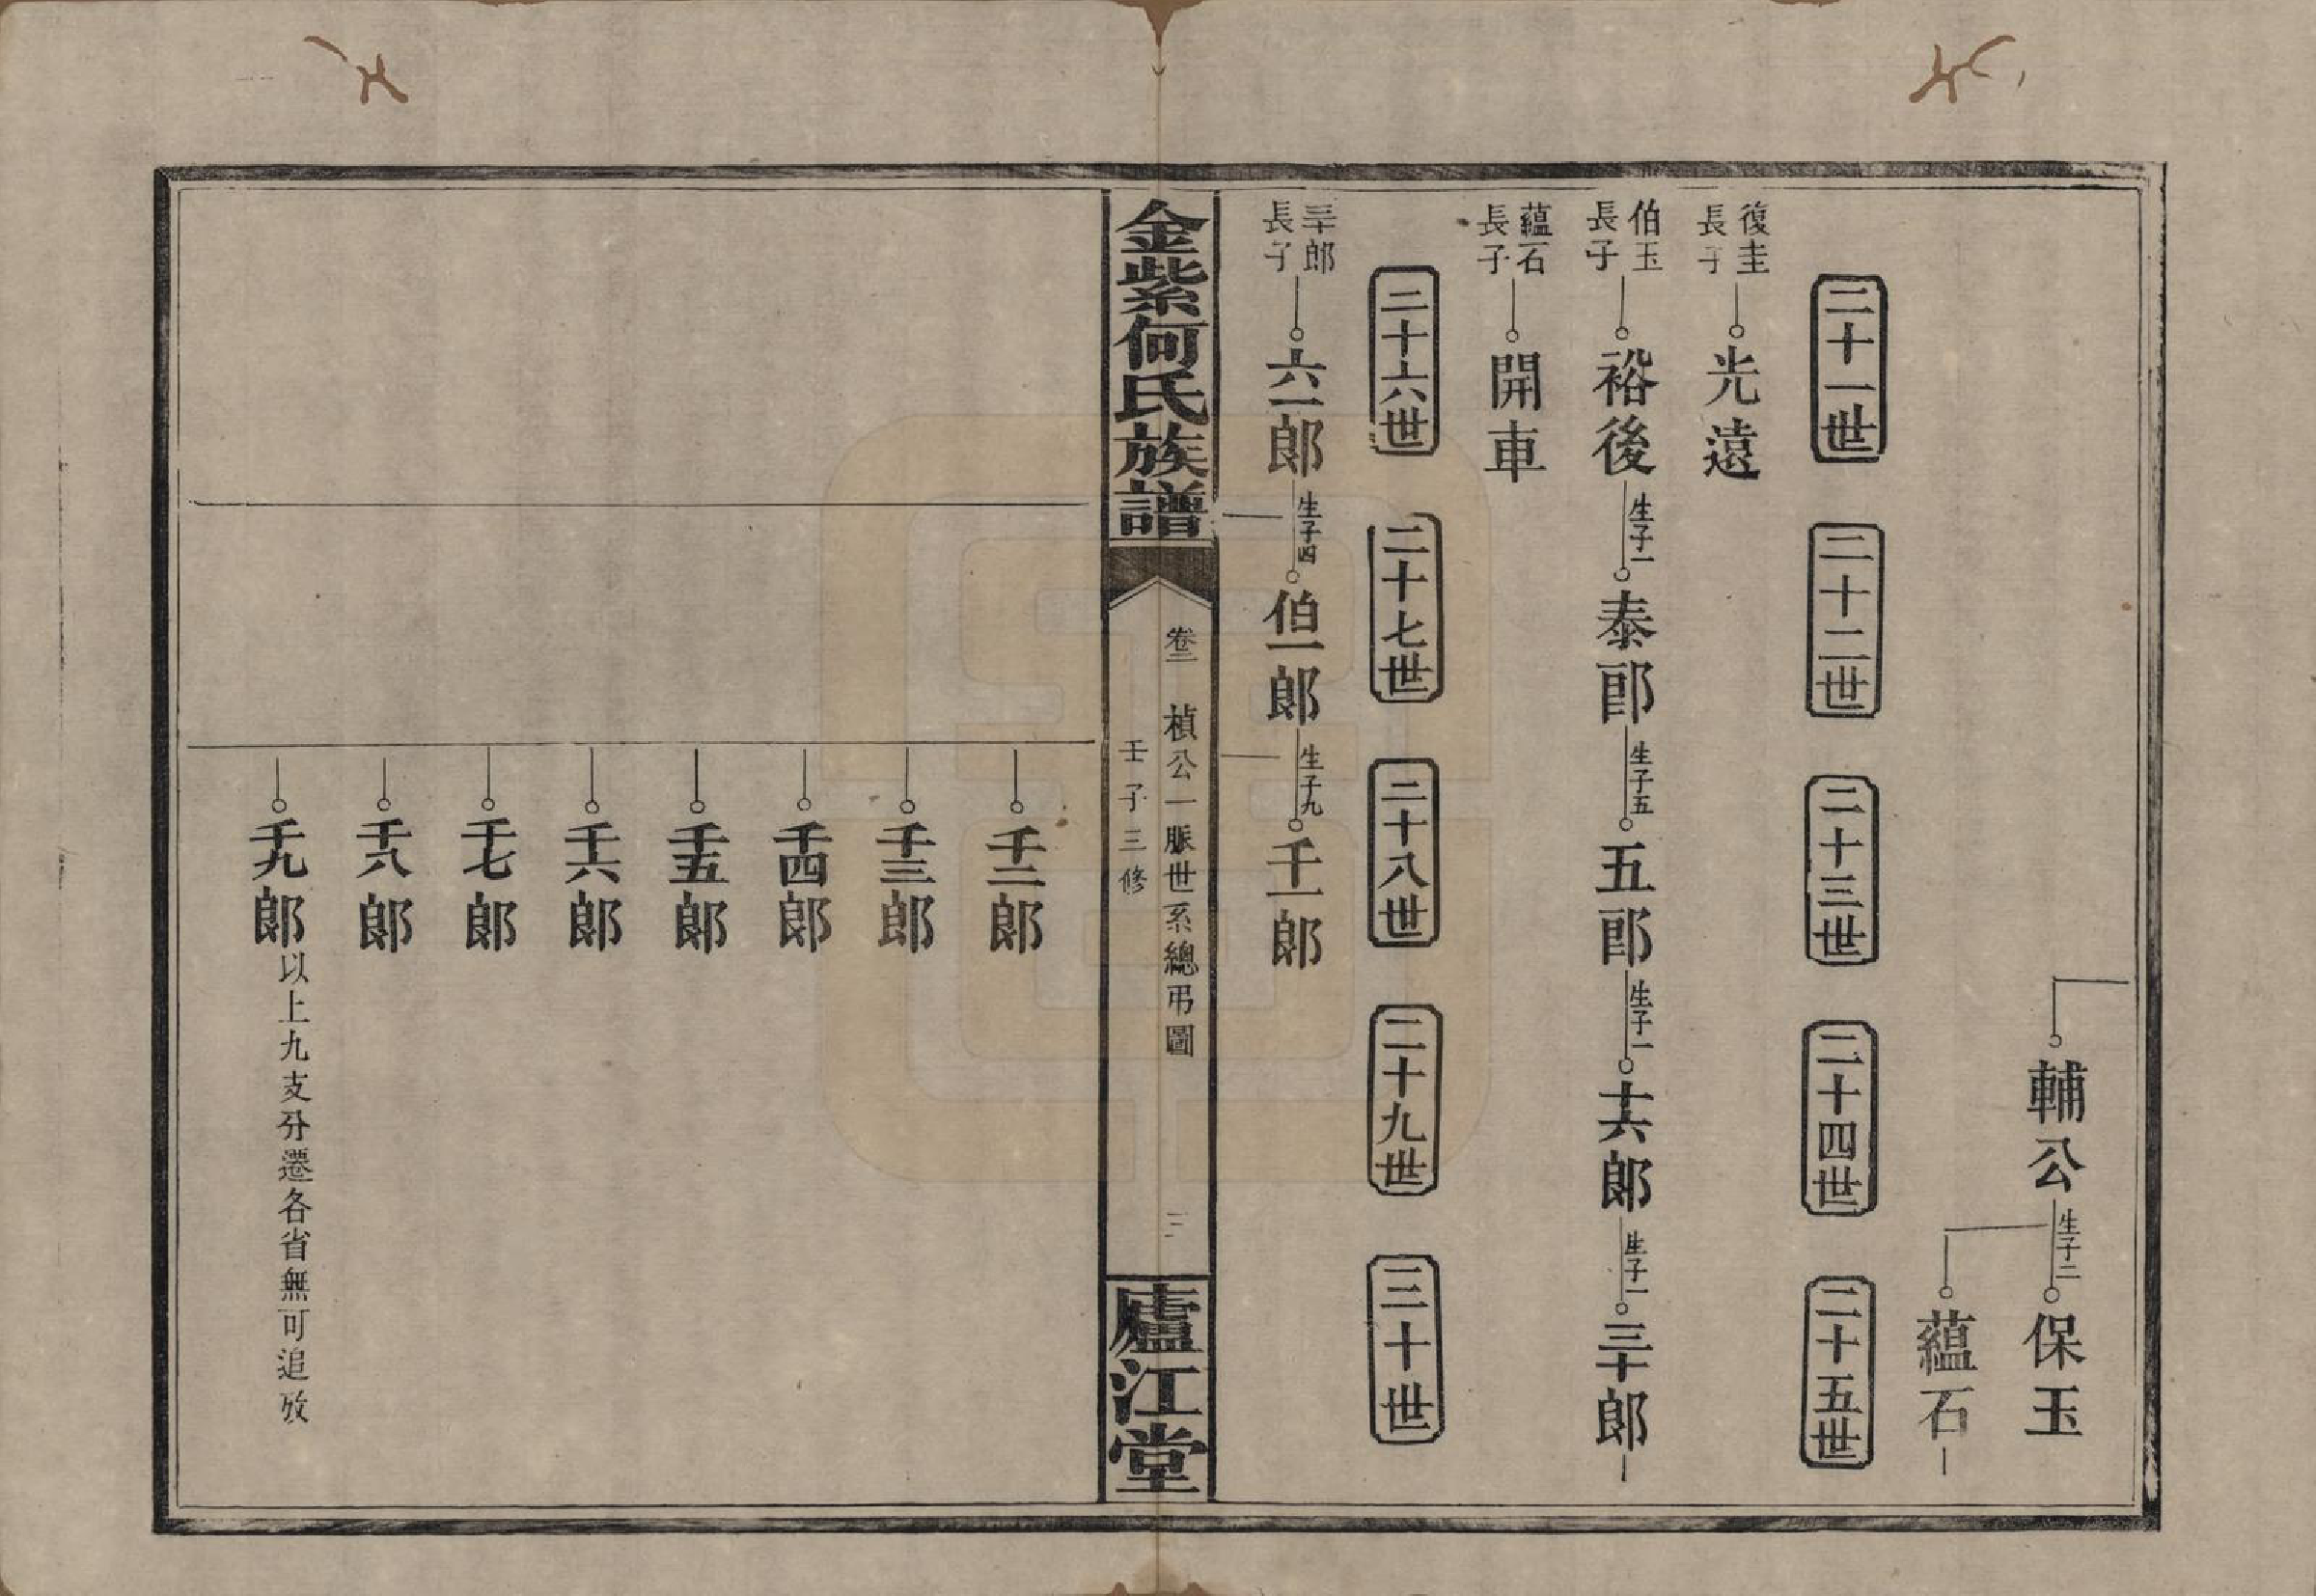 輔公
生子二
保玉
蘊石
二十一世
二十二世
二十三世
二十四世
二十五世
復圭
長子
光遠
伯玉
長子
裕後
生子一
泰郎
生子五
五郎
生子一
十六郎
生子一
三十郎
蘊石
長子
開車
二十六世
二十七世
二十八世
二十九世
三十世
三十郎
長子
六一郎
生子四
伯一郎
生子九
千一郎
金紫何氏族譜
卷二
楨公一脈世系總弔圖
壬子三修
三
廬江堂
千二郎
千三郎
千四郎
千五郎
千六郎
千七郎
千八郎
千九郎
以上九支分遷各省無可追攷